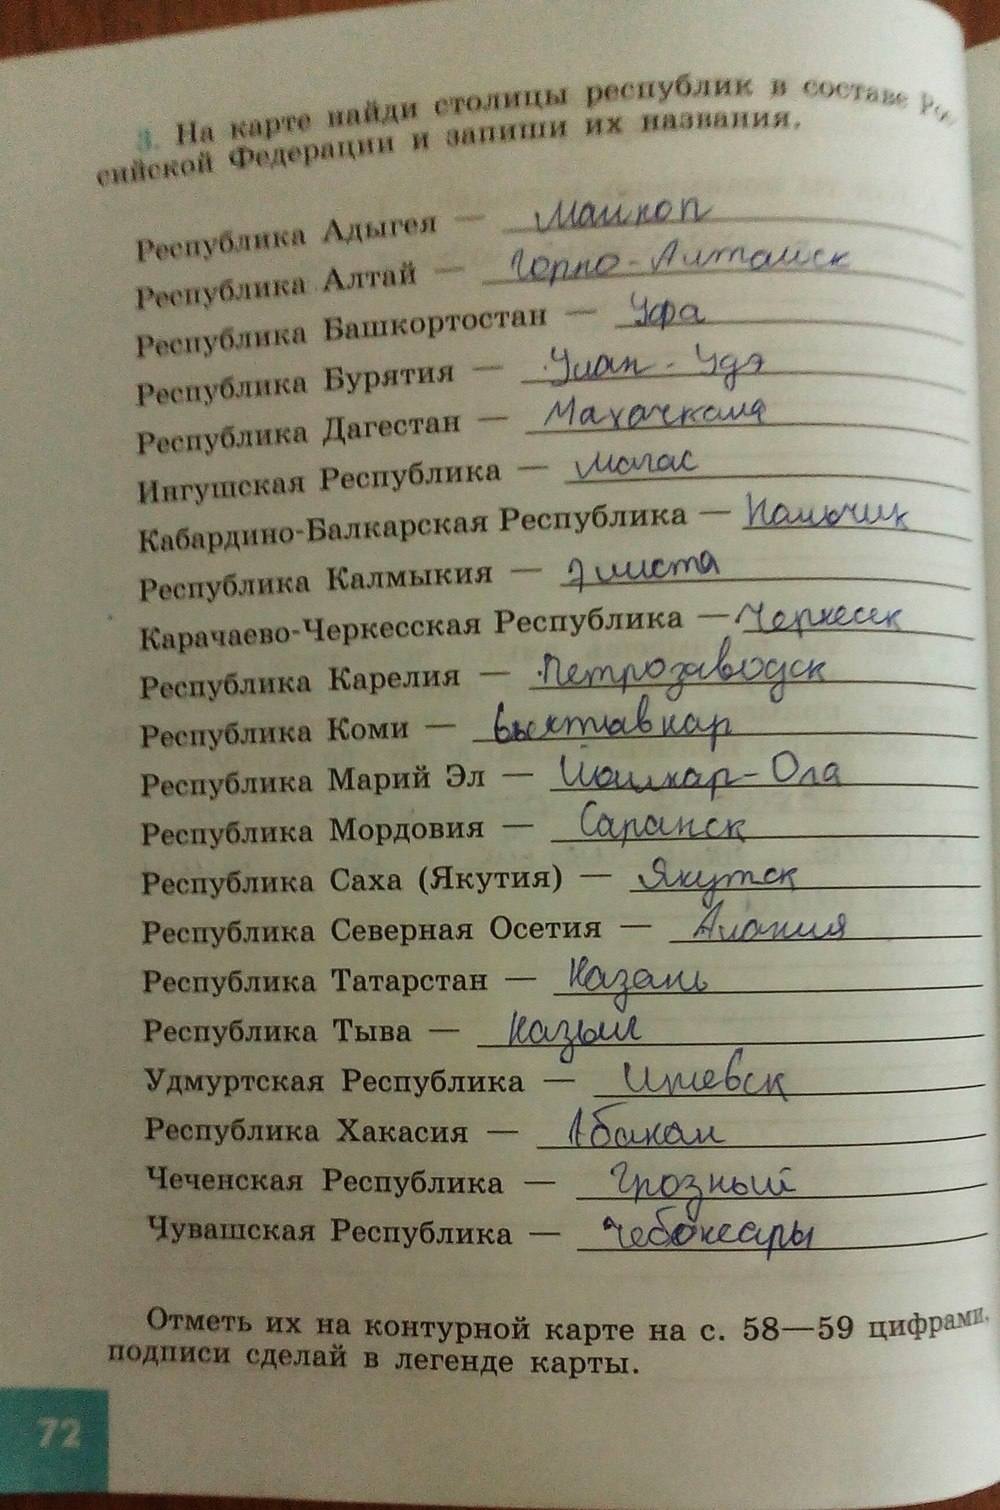 3. На карте найди столицы республик в составе Рос
сийской Федерации и запиши их названия.
Республика Адыгея — Майкоп
Республика Алтай — Горно-Алтайск
Республика Башкортостан — Уфа
Республика Бурятия — Улан-Удэ
Республика Дагестан — Махачкала
Ингушская Республика — Магас
Кабардино-Балкарская Республика — Нальчик
Республика Калмыкия — Элиста
Карачаево-Черкесская Республика — Черкеск
Республика Карелия — Петрозаводск
Республика Коми — Сыктавкар
Республика Марий Эл — Йошкар-Ола
Республика Мордовия — Саранск
Республика Саха (Якутия) — Якутск
Республика Северная Осетия — Алания
Республика Татарстан — Казань
Республика Тыва — Кызыл
Удмуртская Республика — Ижевск
Республика Хакасия — Абакан
Чеченская Республика — Грозный
Чувашская Республика — Чебоксары
Отметь их на контурной карте на с. 58—59 цифрами,
подписи сделай в легенде карты.
72